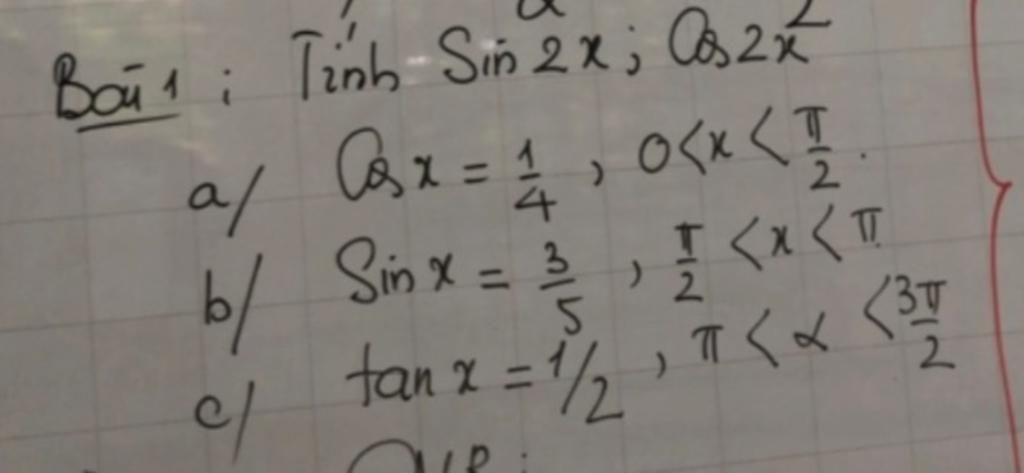 Bài 1 : Tính Sin 2x ; Cos 2x
a/ Cos x = 1/4 , 0 < x < π/2 .
b/ Sin x = 3/5 , π/2 < x < π
c/ tan x = 1/2 , π < α < 3π/2